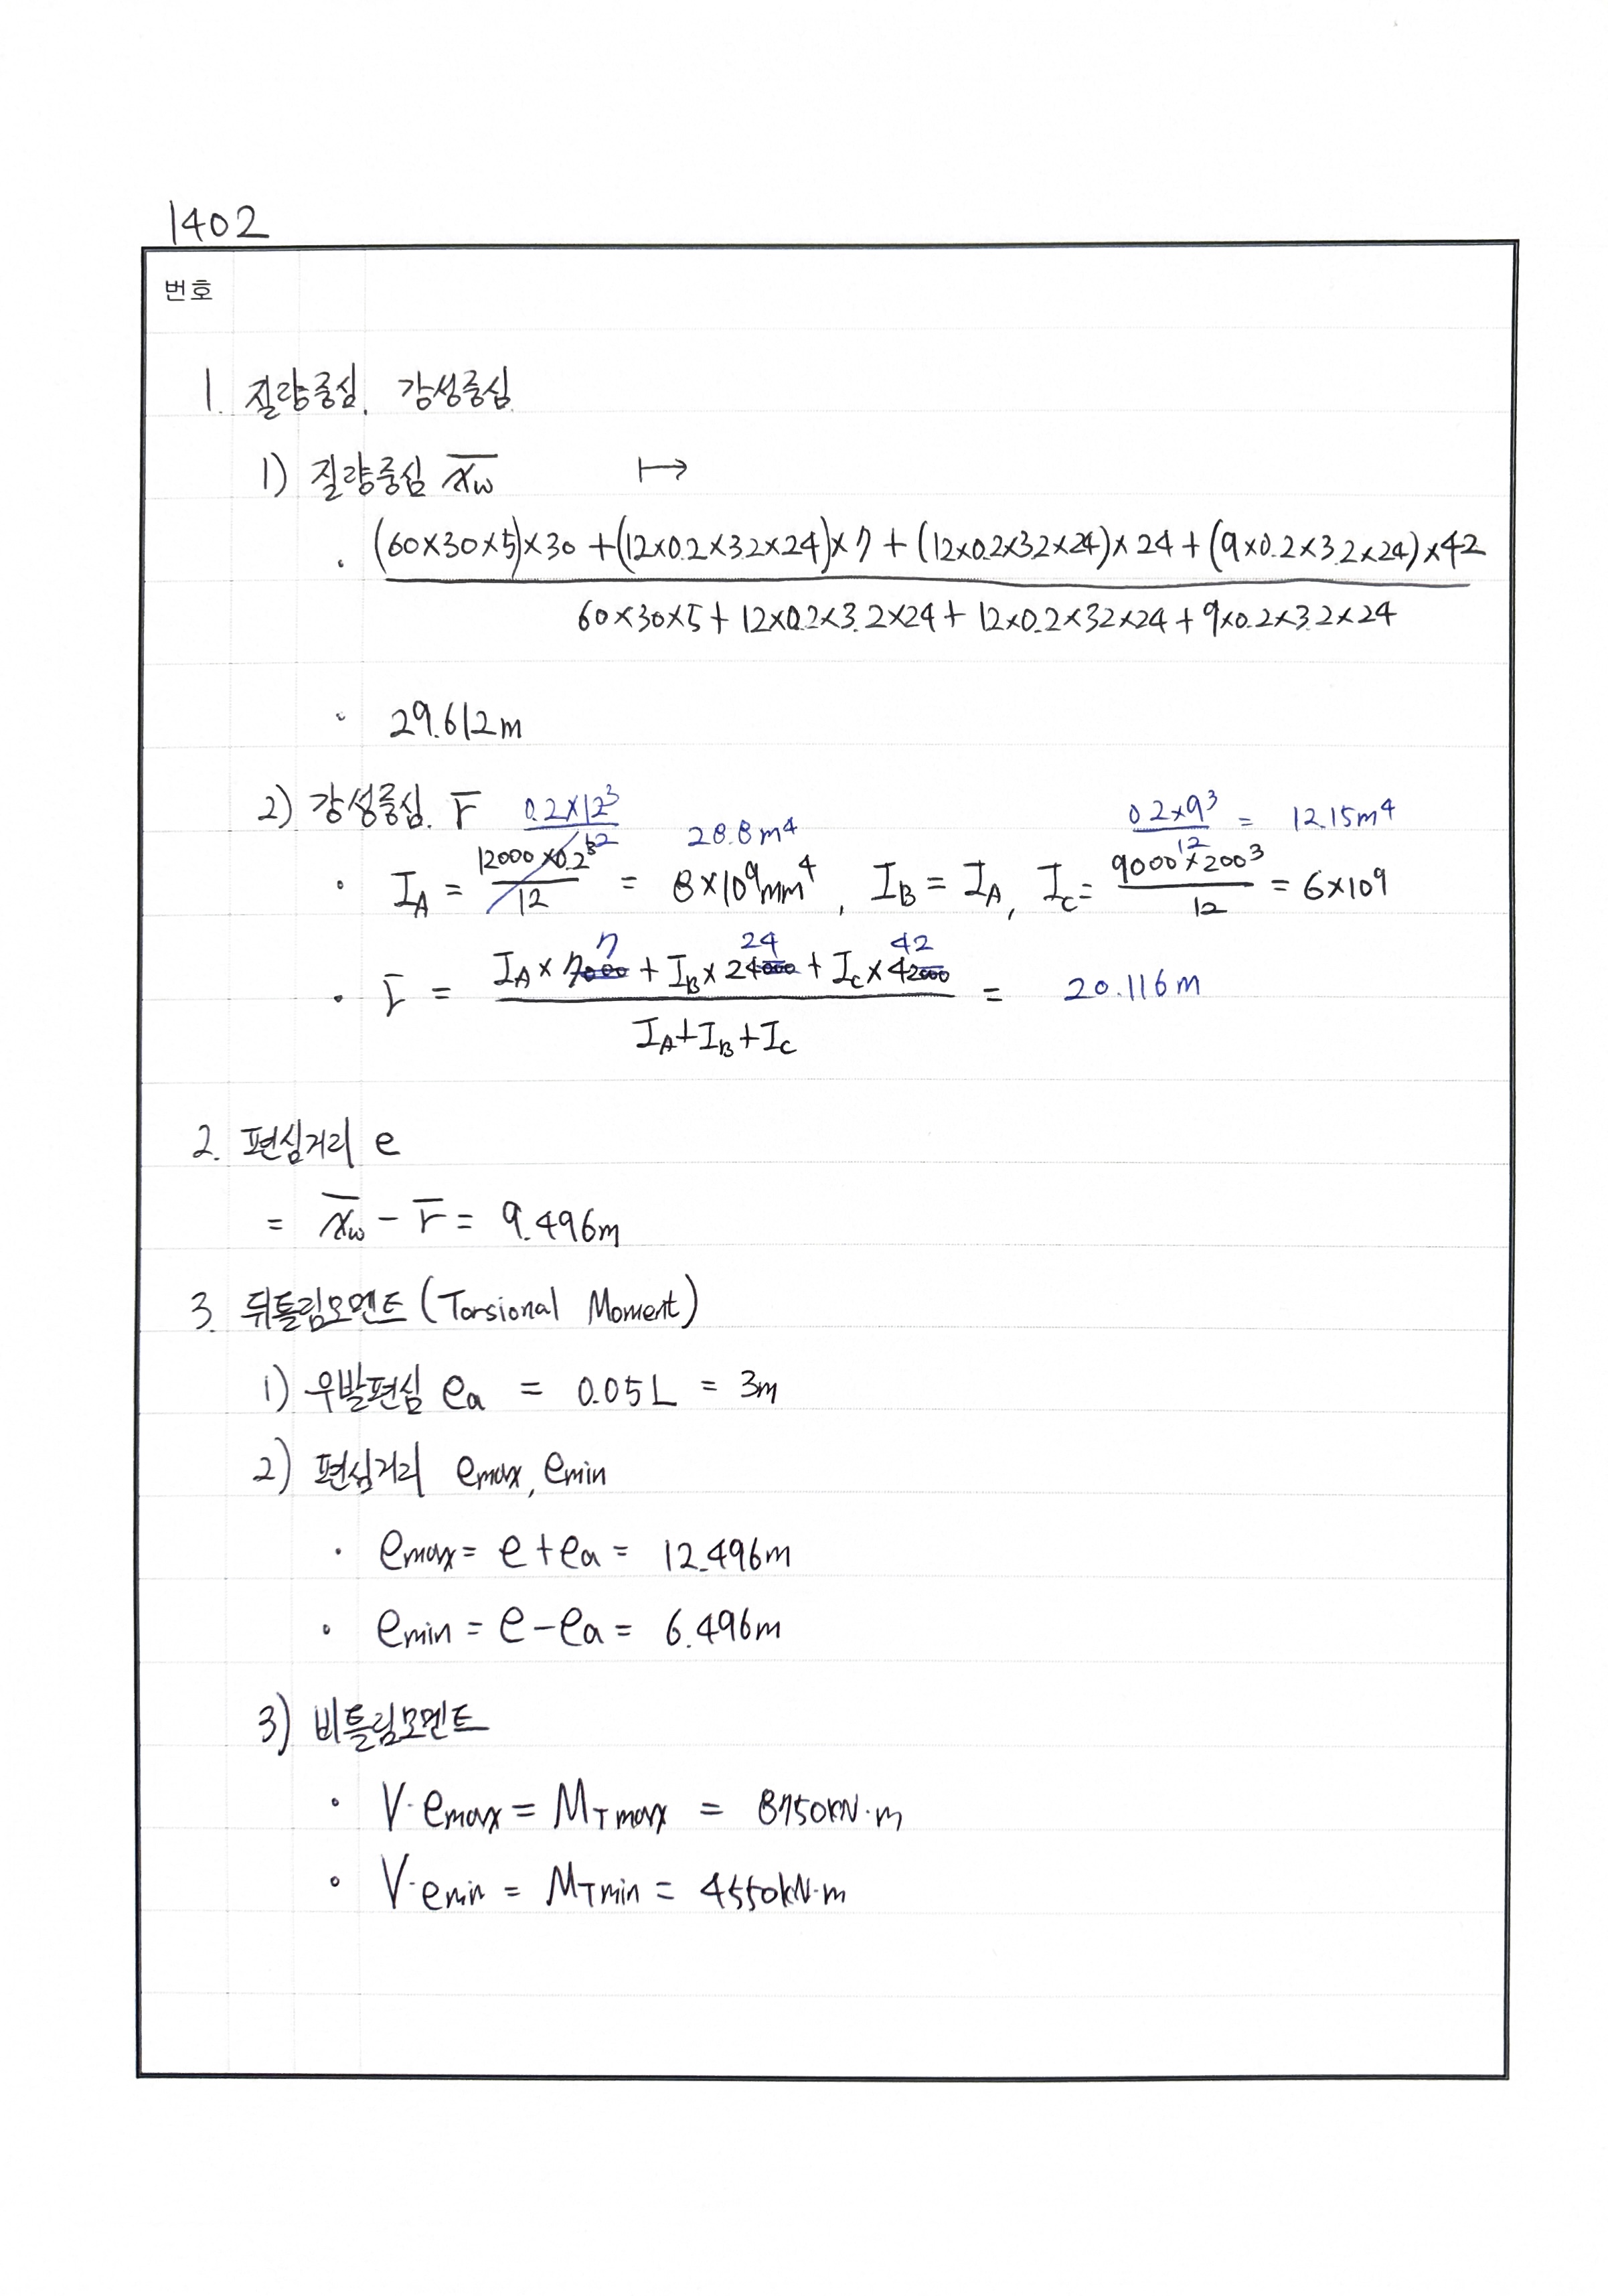 1402
번호
1. 질량중심, 강성중심
1) 질량중심 x̄w ↦
· (60×30×5)×30 + (12×0.2×3.2×24)×7 + (12×0.2×3.2×24)×24 + (9×0.2×3.2×24)×42
60×30×5 + 12×0.2×3.2×24 + 12×0.2×3.2×24 + 9×0.2×3.2×24
· 29.612m
2) 강성중심 r̄ 0.2×12³/12 28.8m⁴ 0.2×9³/12 = 12.15m⁴
· I_A = 12000×0.2³/12 = 8×10⁹mm⁴, I_B = I_A, I_C = 9000×200³/12 = 6×10⁹
7 24 42
· r̄ = I_A×7000 + I_B×24000 + I_C×42000 = 20.116m
I_A+I_B+I_C
2. 편심거리 e
= x̄w − r̄ = 9.496m
3. 뒤틀림모멘트 (Torsional Moment)
1) 우발편심 ea = 0.05L = 3m
2) 편심거리 emax, emin
· emax = e+ea = 12.496m
· emin = e−ea = 6.496m
3) 비틀림모멘트
· V·emax = M_Tmax = 8750kN·m
· V·emin = M_Tmin = 4550kN·m